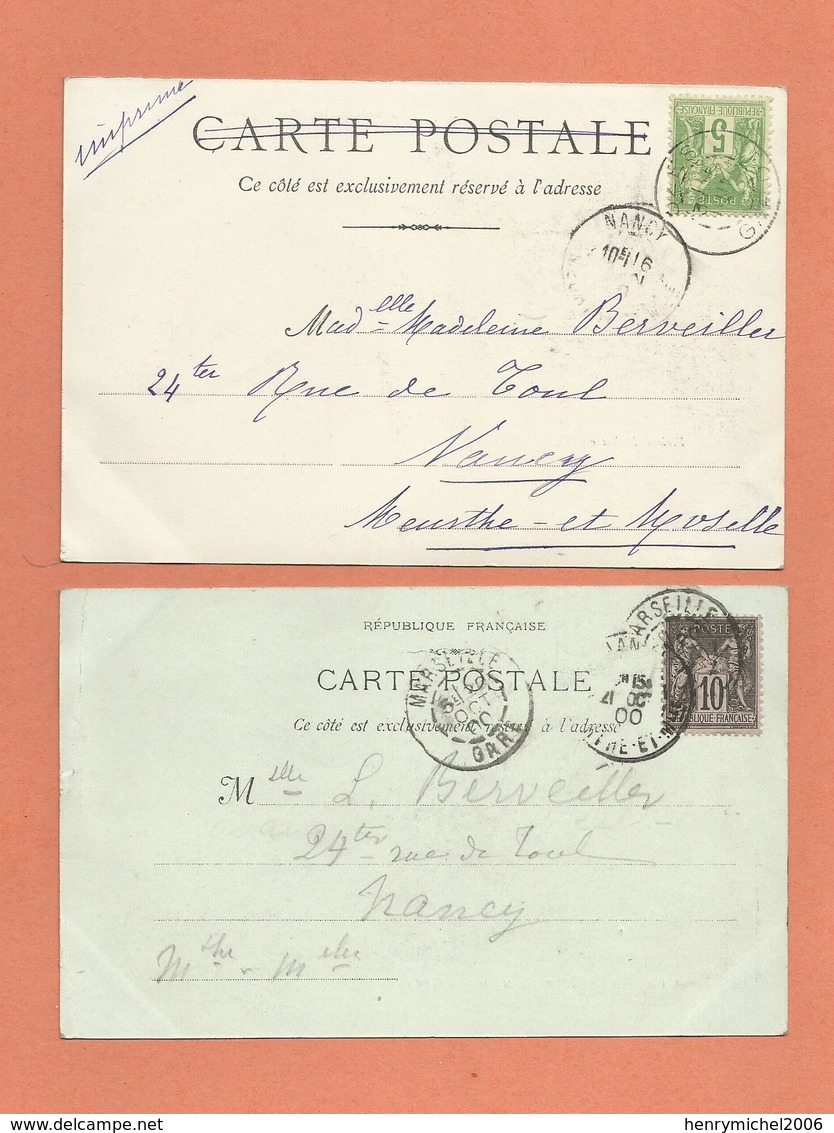 imprimé
CARTE POSTALE
Ce côté est exclusivement réservé à l'adresse
RÉPUBLIQUE FRANÇAISE
5
POSTE
NANCY
10E 16
Mad elle Madeleine Berveiller
24 ter Rue de Toul
Nancy
Meurthe-et Moselle
RÉPUBLIQUE FRANÇAISE
CARTE POSTALE
Ce côté est exclusivement réservé à l'adresse
MARSEILLE
OCT
00
GARE
MARSEILLE
POSTE
10
RÉPUBLIQUE FRANÇAISE
00
M elle L. Berveiller
24 ter rue de Toul
Nancy
Mthe - Melle
henrymichel2006